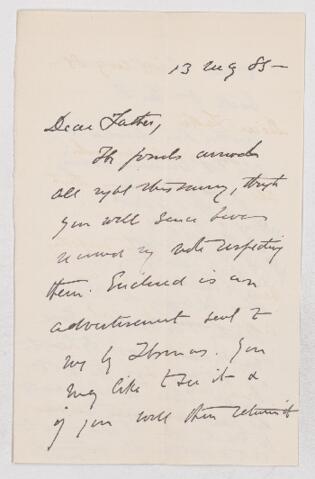 13 Aug 85 —
Dear Father,
The fossils arrived
all right this , though
you will since have
received my note respecting
them. Enclosed is an
advertisement sent to
me by Thomas. You
may like to see it &
if you will then return it